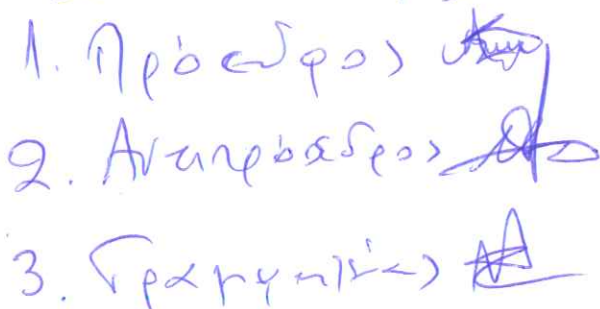 1. Πρόεδρος
2. Αντιπρόεδρος
3. Γραμματέας